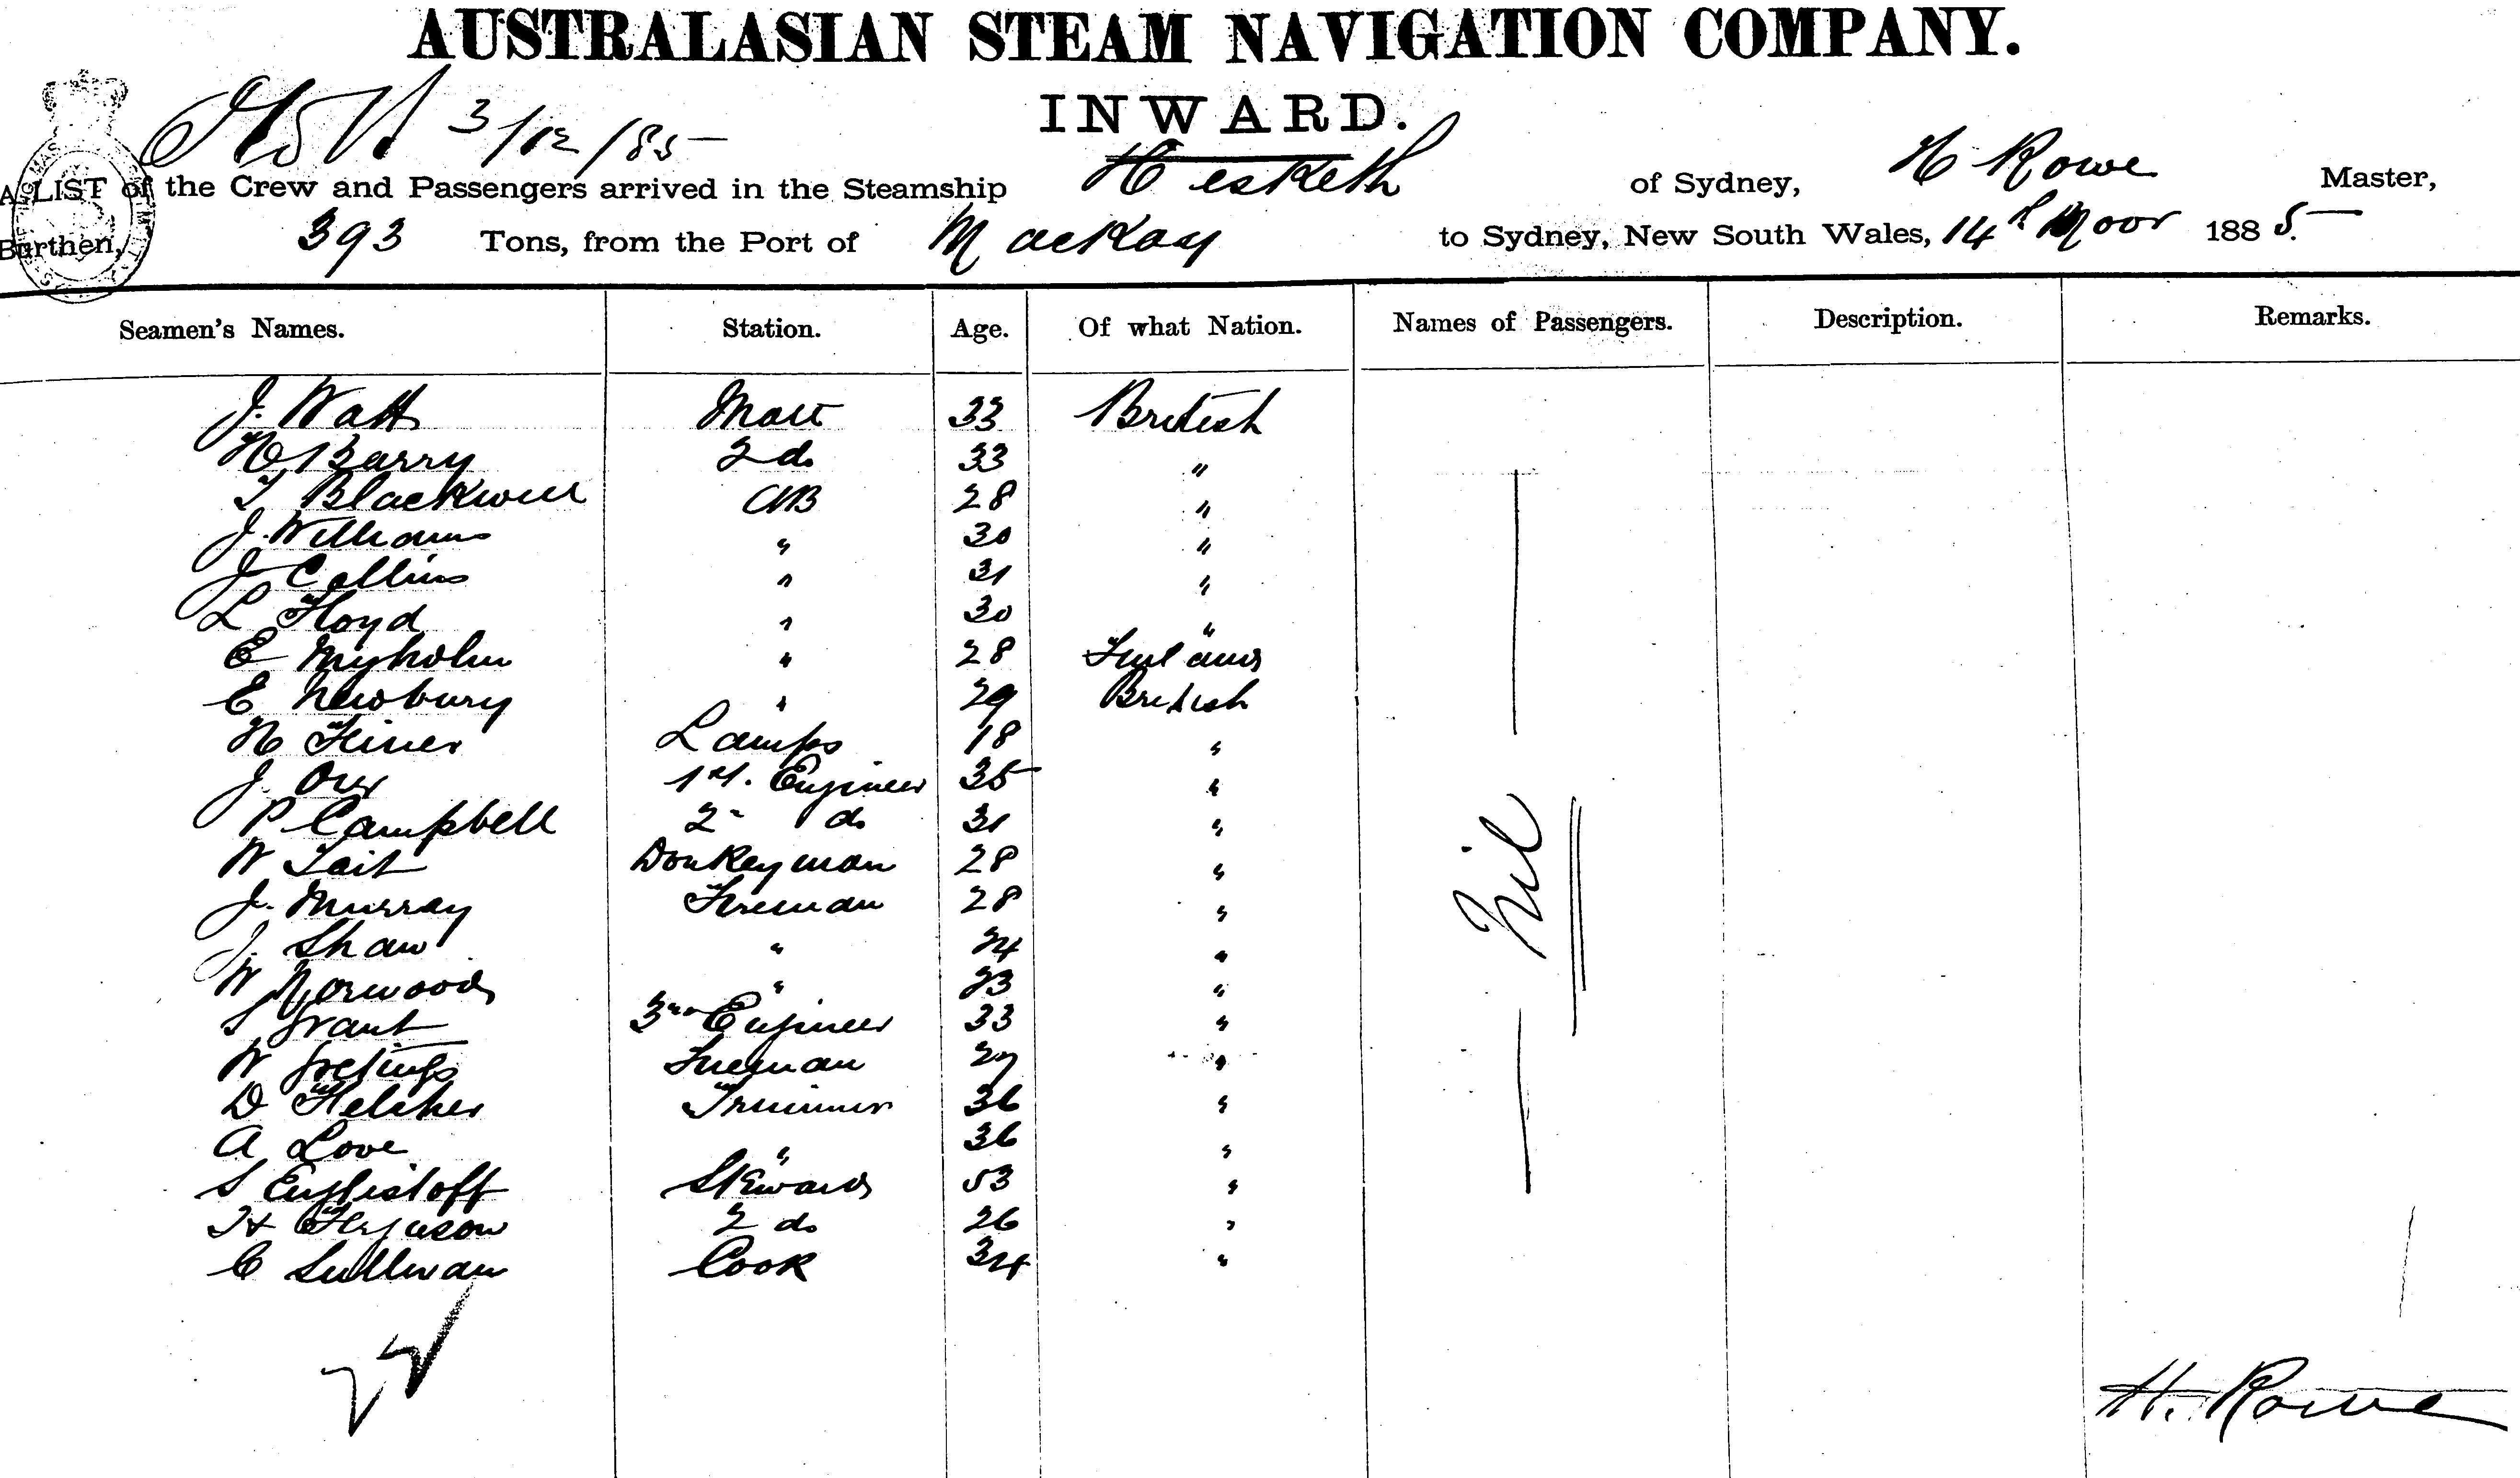 AUSTRALASIAN STEAM NAVIGATION COMPANY.
INWARD.
3/12/85
A LIST of the Crew and Passengers arrived in the Steamship Hesketh of Sydney, H Rowe Master,
Burthen, 393 Tons, from the Port of Mackay to Sydney, New South Wales, 14th Novr 1885.
Seamen's Names. Station. Age. Of what Nation. Names of Passengers. Description. Remarks.
J. Watt Mate 33 British
H Barry 2 do 33 "
T Blackwell AB 28 "
J. Williams " 30 "
J Collins " 31 "
L Floyd " 30 "
E Myholm " 28 Finland
E Newbury " 29 British
H Lamps 18 "
J Orr 1st. Engineer 35 "
P Campbell 2 do 31 "
W Tait Donkeyman 28 "
J. Murray Fireman 28 "
J. Shaw " 24 "
W Norwood " 23 "
S Grant 3rd Engineer 33 "
W Fireman 27 "
D Trimmer 36 "
A Love " 36 "
S Steward 53 "
H Ferguson 2 do 26 "
C Sullivan Cook 34 "
Nil
H. Rowe